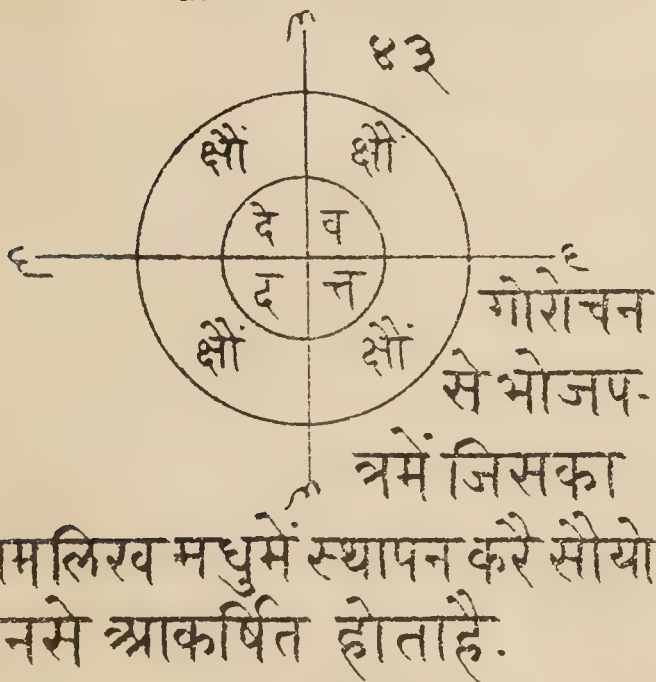 ४३
क्षौं क्षौं
दे व
द त्त
क्षौं क्षौं
गोरोचन
से भोजप-
त्रमें जिसका
मलिख मधुमें स्थापन करै सौयो
नसे आकर्षित होताहै.